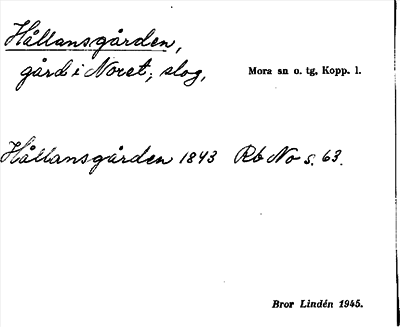 Hållansgården,
gård i Noret, slog,
Mora sn o. tg, Kopp. l.
Hållansgården 1843 Rb No s. 63.
Bror Lindén 1945.